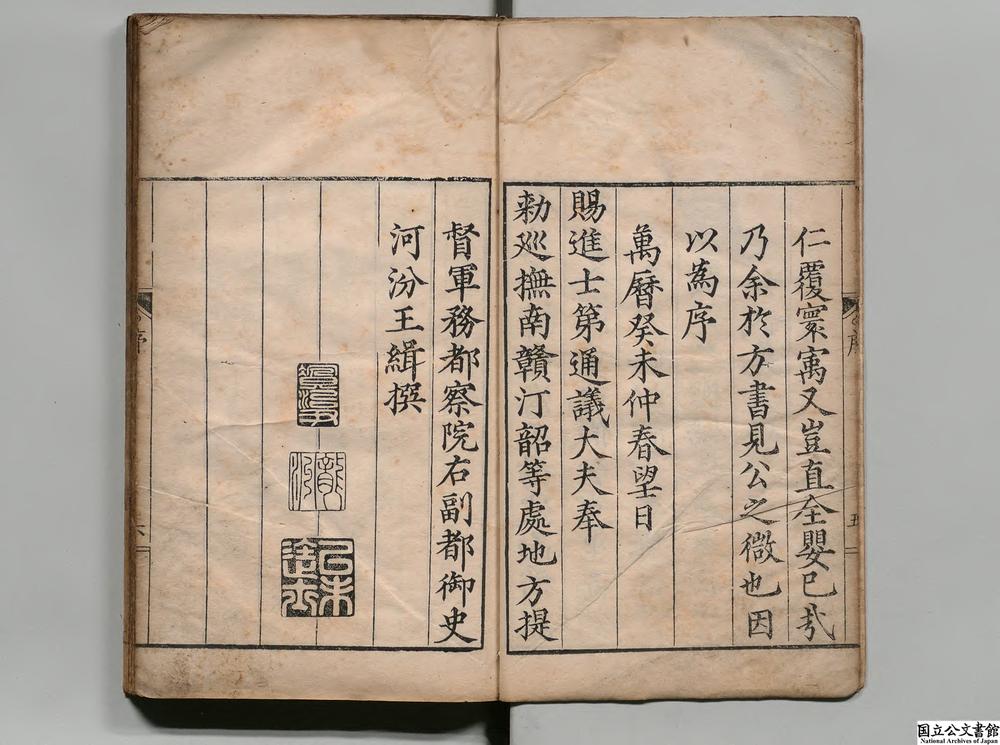 仁覆寰寓又豈直全嬰已㢤
乃余於方書見公之微也因
以為序
萬曆癸未仲春望日
賜進士第通議大夫奉
勅巡撫南贛汀韶等處地方提
督軍務都察院右副都御史
河汾王緝撰
己未進士
序
五
六
国立公文書館
National Archives of Japan